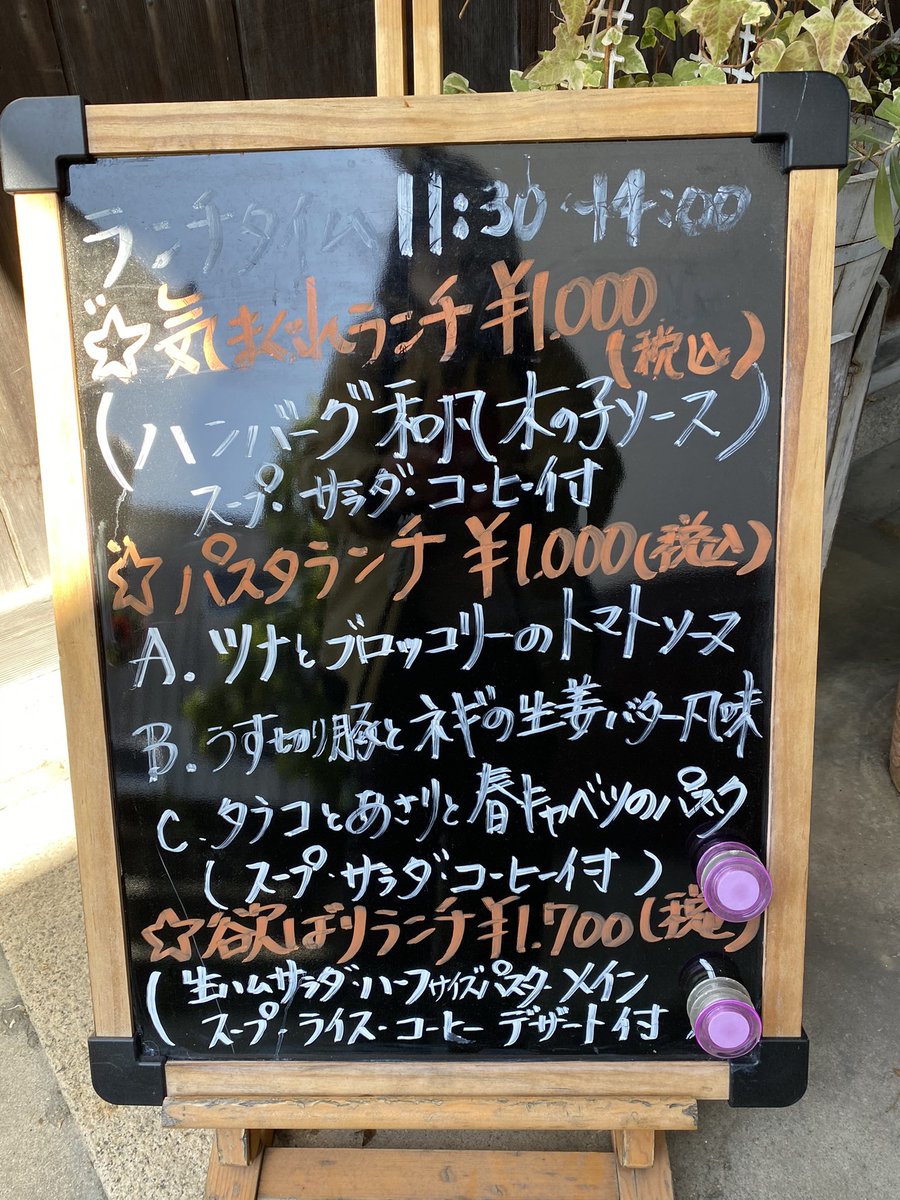 ランチタイム 11:30-14:00
☆気まぐれランチ ¥1.000
(税込)
(ハンバーグ和風木の子ソース)
スープ・サラダ・コーヒー付
☆パスタランチ ¥1.000(税込)
A. ツナとブロッコリーのトマトソース
B. うす切り豚とネギの生姜バター風味
C. タラコとあさりと春キャベツのパスタ
(スープ・サラダ・コーヒー付)
☆欲ばりランチ ¥1.700(税込)
(生ハムサラダ・ハーフサイズパスタ・メイン
スープ・ライス・コーヒー デザート付)